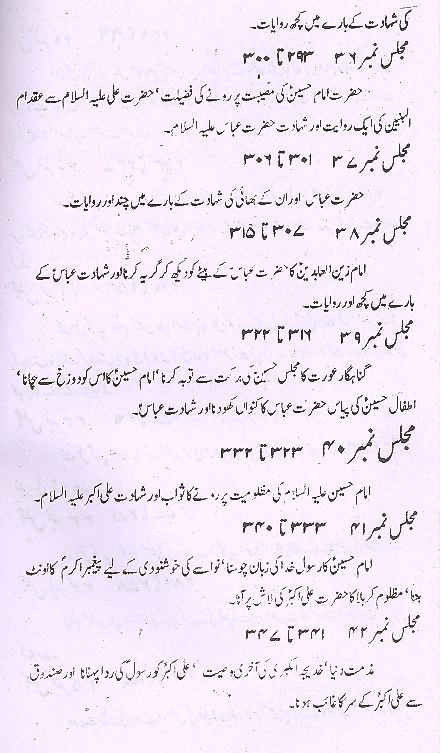 کی شہادت کے بارے میں کچھ روایات۔
مجلس نمبر ۳۶ ۲۹۳ تا ۳۰۰
حضرت امام حسینؑ کی مصیبت پر رونے کی فضیلت' حضرت علی علیہ السلام سے عقد ام
البنین کی ایک روایت اور شہادت حضرت عباس علیہ السلام۔
مجلس نمبر ۳۷ ۳۰۱ تا ۳۰۶
حضرت عباس اور ان کے بھائی کی شہادت کے بارے میں چند اور روایات۔
مجلس نمبر ۳۸ ۳۰۷ تا ۳۱۵
امام زین العابدینؑ کا حضرت عباسؑ کے بیٹے کو دیکھ کر گریہ کرنا اور شہادت عباسؑ کے
بارے میں کچھ اور روایات۔
مجلس نمبر ۳۹ ۳۱۶ تا ۳۲۲
گناہگار عورت کا مجلس حسینؑ کی برکت سے توبہ کرنا' امام حسینؑ کا اس کو دوزخ سے بچانا'
اطفال حسینؑ کی پیاس حضرت عباسؑ کا کنواں کھودنا اور شہادت عباسؑ۔
مجلس نمبر ۴۰ ۳۲۳ تا ۳۳۲
امام حسین علیہ السلام کی مظلومیت پر رونے کا ثواب اور شہادت علی اکبر علیہ السلام۔
مجلس نمبر ۴۱ ۳۳۳ تا ۳۴۰
امام حسینؑ کا رسول خدا کی زبان چوسنا' نواسے کی خوشنودی کے لیے پیغمبر اکرمؐ کا اونٹ
بننا' مظلوم کربلا کا حضرت علی اکبرؑ کی لاش پر آنا۔
مجلس نمبر ۴۲ ۳۴۱ تا ۳۴۷
مذمت دنیا' خدیجۃ الکبریٰ کی آخری وصیت' علی اکبرؑ کو رسولؐ کی ردا پہنانا اور صندوق
سے علی اکبرؑ کے سر کا غائب ہونا۔